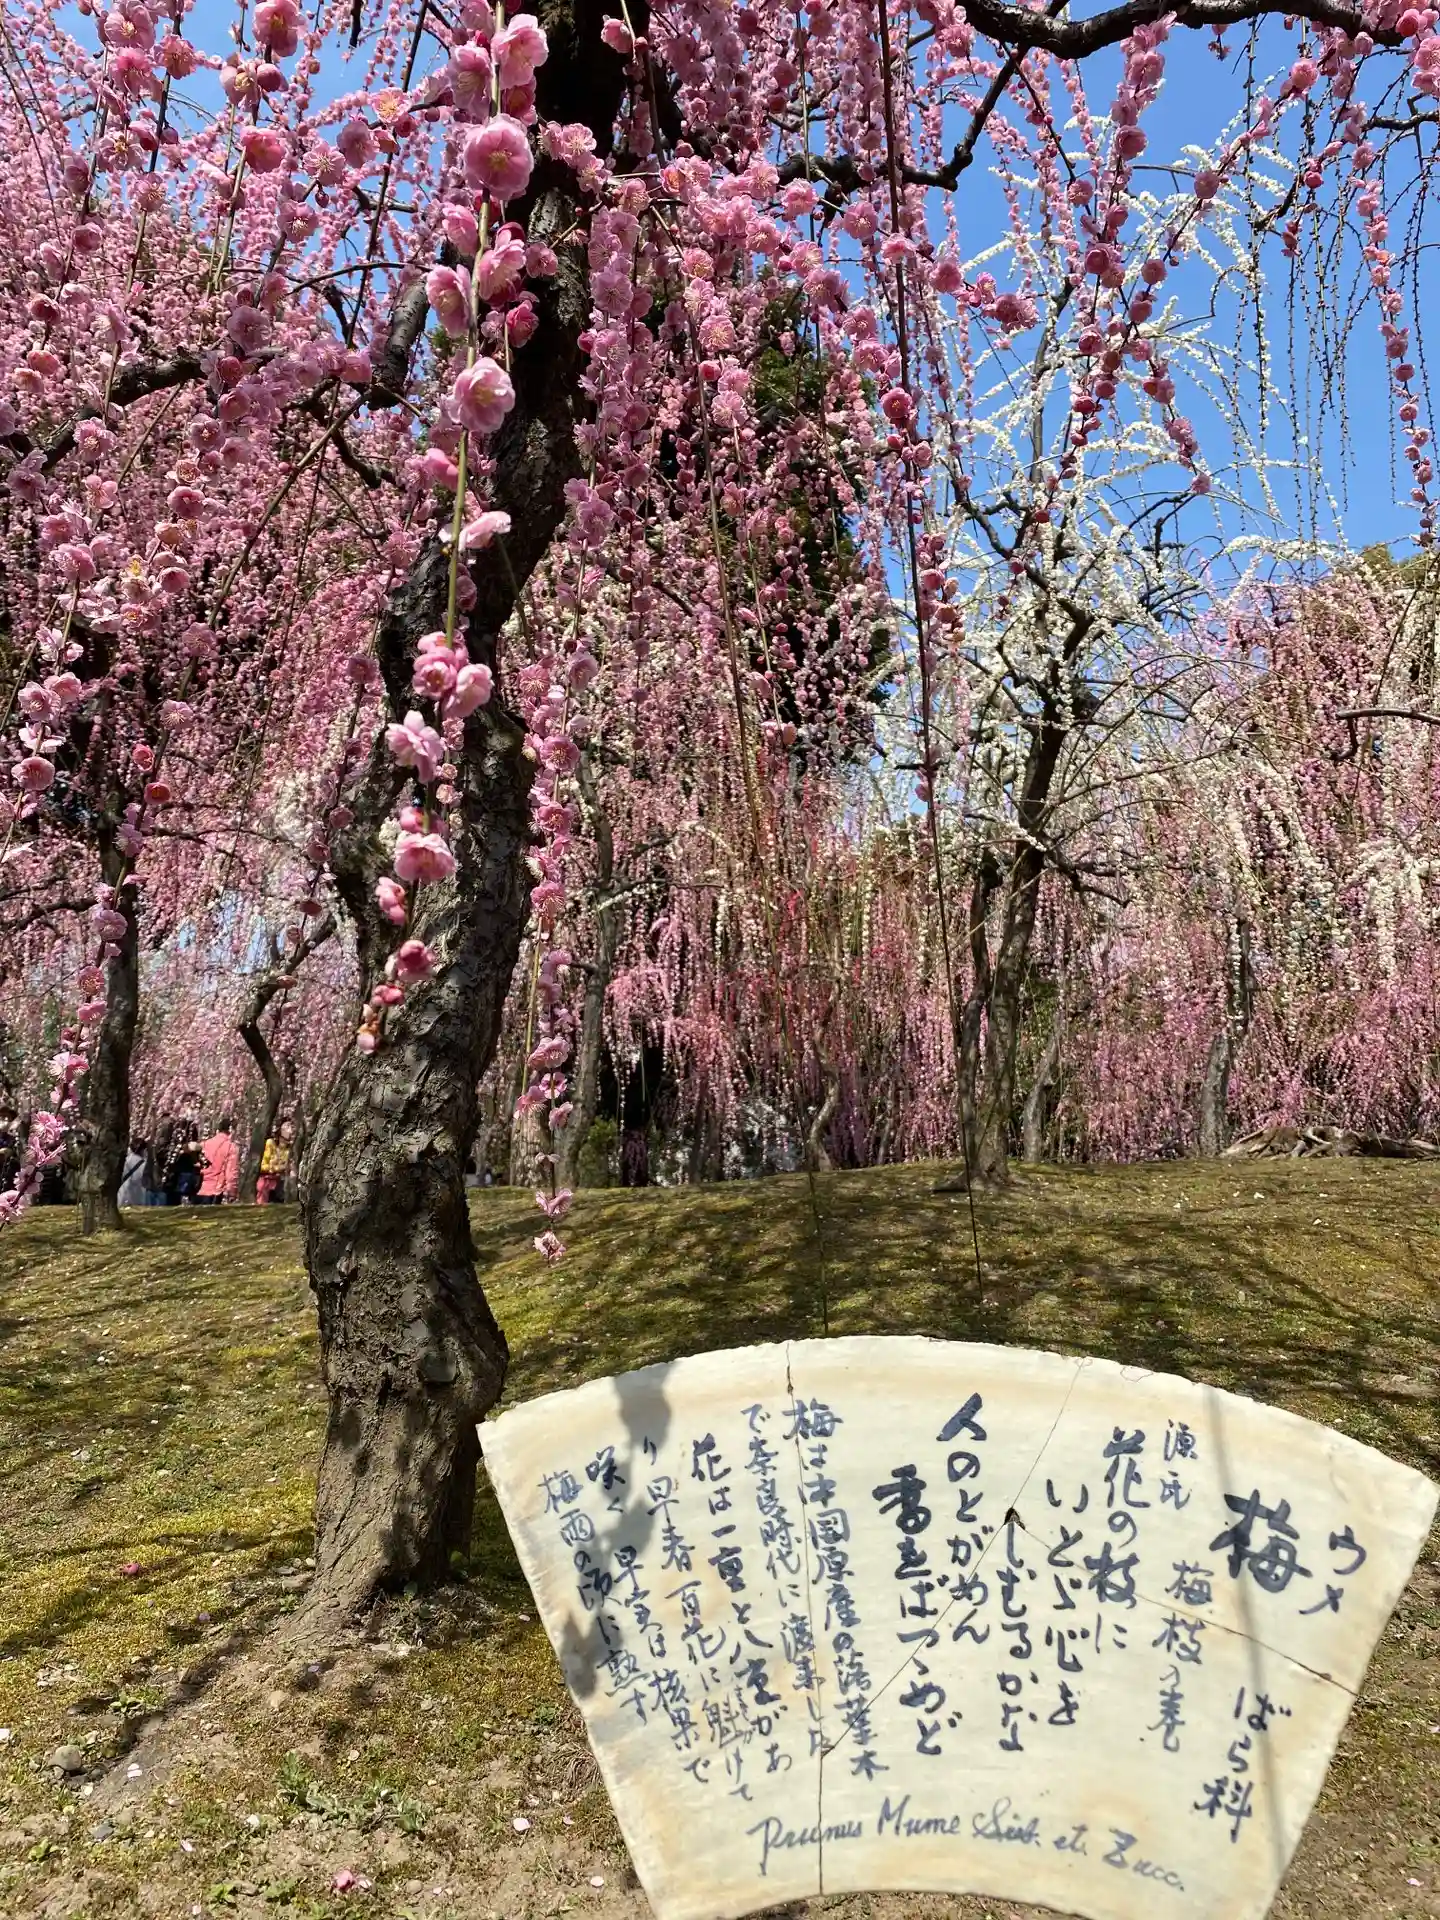 ウメ
梅 ばら科
源氏 梅枝の巻
花の枝に
いとゞ心を
しむるかな
人のとがめん
香をばつゝめど
梅は中国原産の落葉木
で奈良時代に渡来した
花は一重と八重があ
り早春百花に魁けて
さきが
咲く 果実は核果で
梅雨の頃に熟す
Prunus Mume Sieb. et. Zucc.